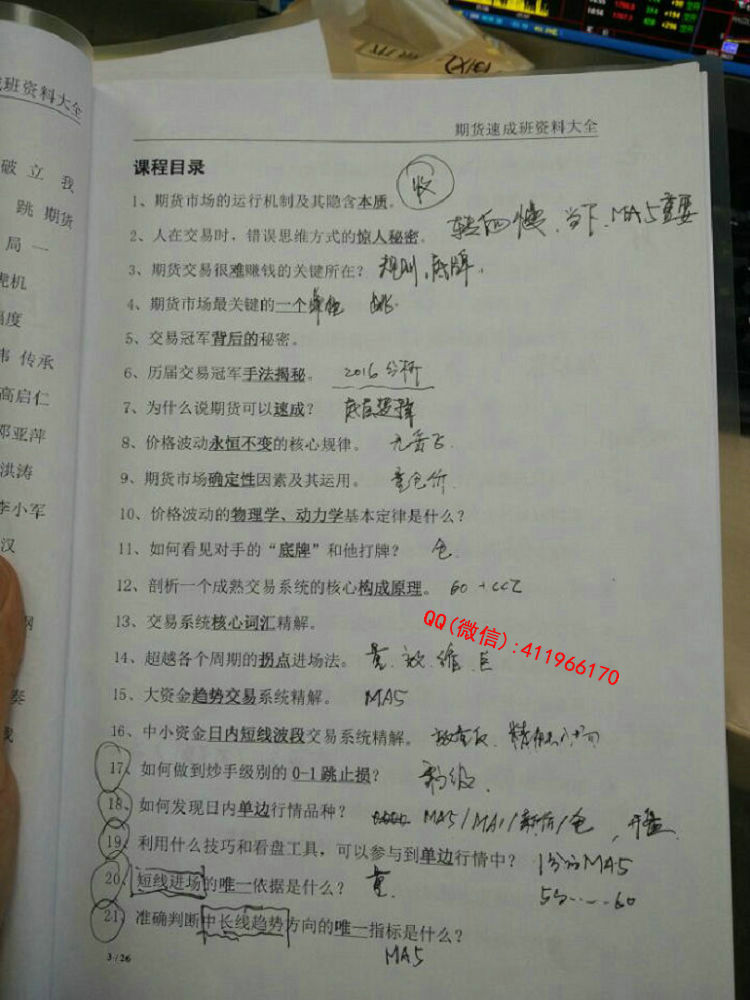 期货速成班资料大全
课程目录
1、期货市场的运行机制及其隐含本质。 收
2、人在交易时，错误思维方式的惊人秘密。 当下、MA5重要
3、期货交易很难赚钱的关键所在？ 规则，底牌。
4、期货市场最关键的一个
5、交易冠军背后的秘密。
6、历届交易冠军手法揭秘。 2016分析
7、为什么说期货可以速成？
8、价格波动永恒不变的核心规律。
9、期货市场确定性因素及其运用。 量仓价.
10、价格波动的物理学、动力学基本定律是什么？
11、如何看见对手的“底牌”和他打牌？ 仓
12、剖析一个成熟交易系统的核心构成原理。 60
13、交易系统核心词汇精解。
QQ(微信):411966170
14、超越各个周期的拐点进场法。 量.
15、大资金趋势交易系统精解。 MA5
16、中小资金日内短线波段交易系统精解。
17、如何做到炒手级别的0-1跳止损？
18、如何发现日内单边行情品种？ MA5/ /仓，开盘
19、利用什么技巧和看盘工具，可以参与到单边行情中？ 1分的MA5
20、短线进场的唯一依据是什么？ 量. 5分……60
21、准确判断中长线趋势方向的唯一指标是什么？
MA5
3/26
班资料大全
破 立 我
跳 期货
局 一
虎机
幅度
韦 传承
高启仁
邓亚萍
洪涛
李小军
汉
奏